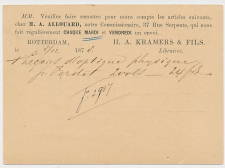 MM. Veuillez faire remettre pour notre compte les articles suivants,
chez M. A. ALLOUARD, notre Commissionnaire, 37 Rue Serpente, qui nous
fait régulièrement CHAQUE MARDI et VENDREDI un envoi.
ROTTERDAM, H. A. KRAMERS & FILS.
le 187 Libraires.
1 d'optique physique
p. Verdet 2 vols